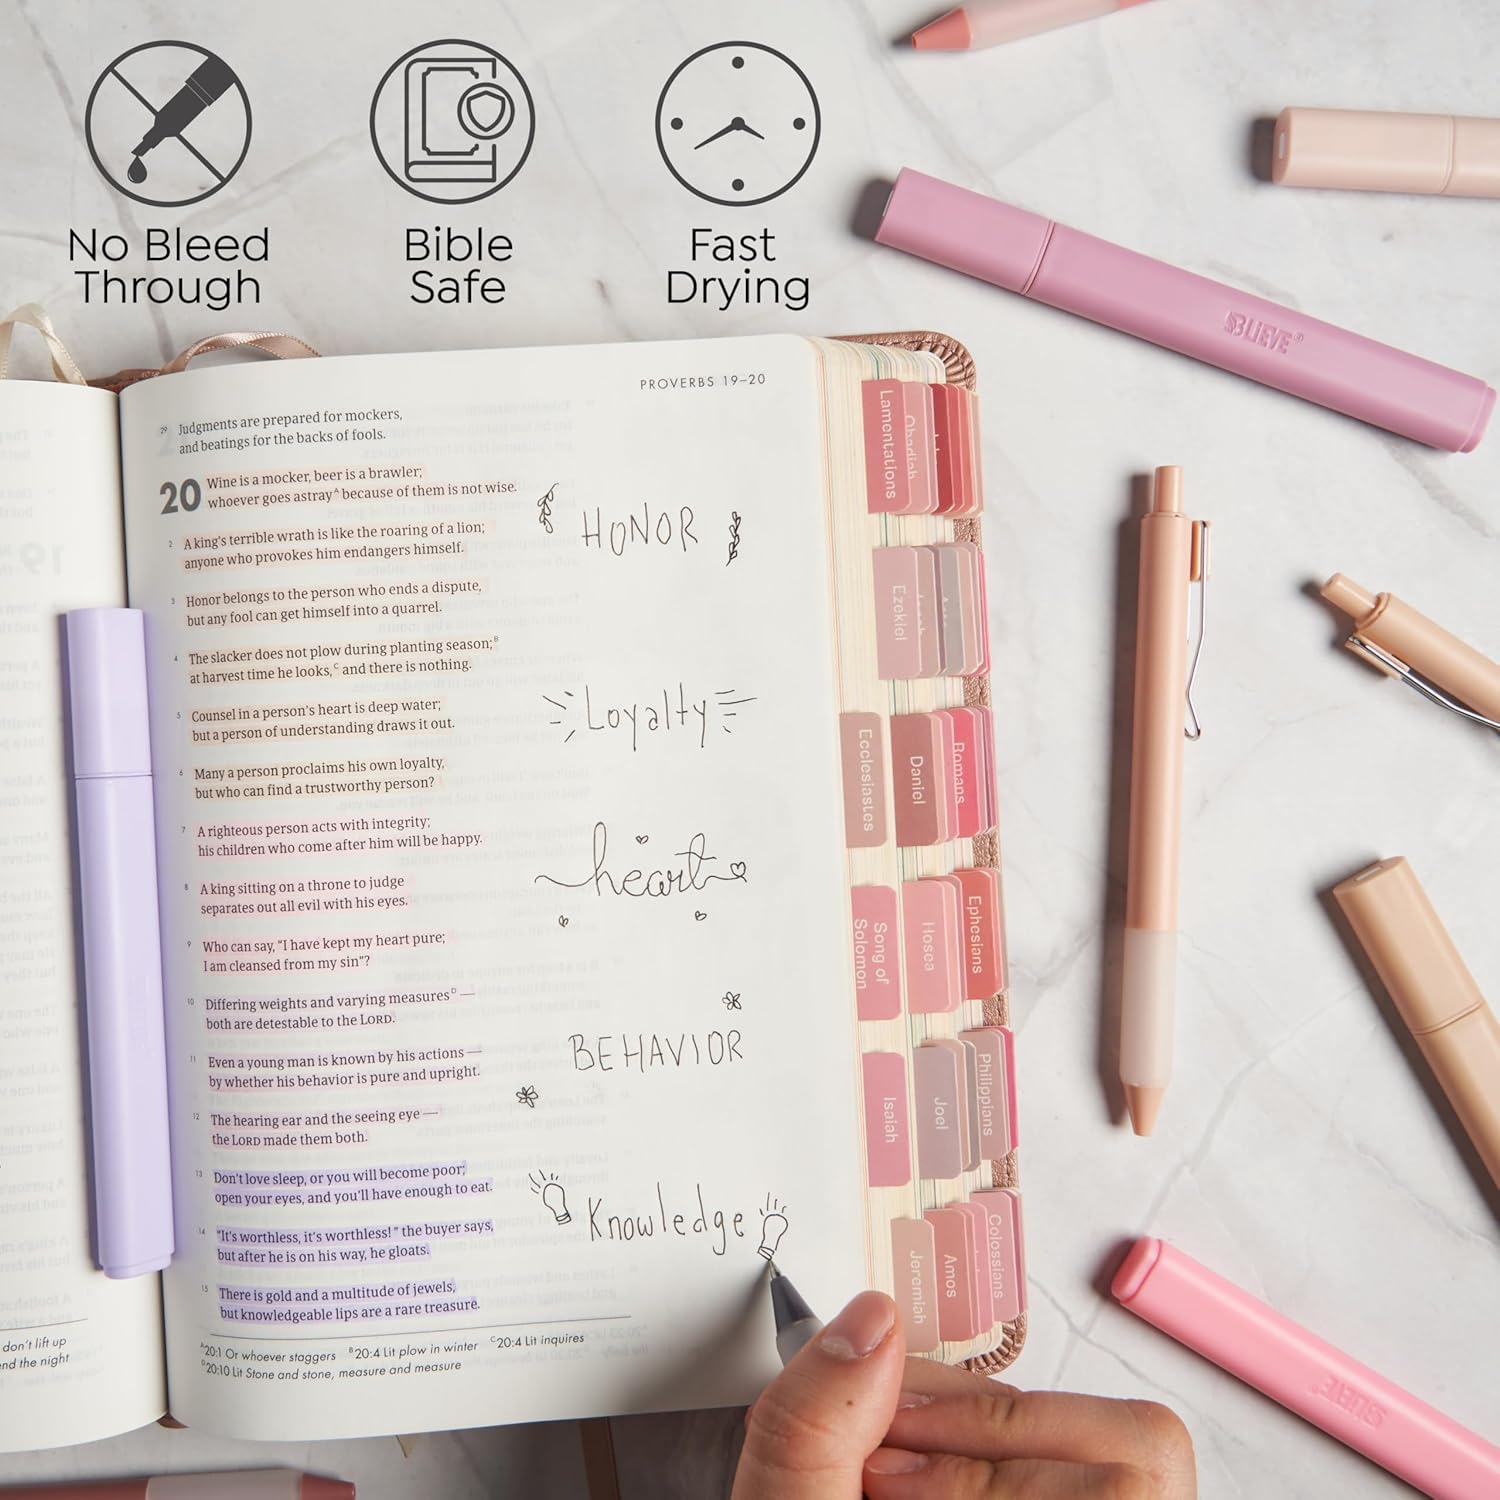 No Bleed
Through
Bible
Safe
Fast
Drying
BLIEVE®
PROVERBS 19–20
29 Judgments are prepared for mockers,
and beatings for the backs of fools.
20 Wine is a mocker, beer is a brawler;
whoever goes astray^A because of them is not wise.
2 A king's terrible wrath is like the roaring of a lion;
anyone who provokes him endangers himself.
3 Honor belongs to the person who ends a dispute,
but any fool can get himself into a quarrel.
4 The slacker does not plow during planting season;^B
at harvest time he looks,^C and there is nothing.
5 Counsel in a person's heart is deep water;
but a person of understanding draws it out.
6 Many a person proclaims his own loyalty,
but who can find a trustworthy person?
7 A righteous person acts with integrity;
his children who come after him will be happy.
8 A king sitting on a throne to judge
separates out all evil with his eyes.
9 Who can say, "I have kept my heart pure;
I am cleansed from my sin"?
10 Differing weights and varying measures^D —
both are detestable to the LORD.
11 Even a young man is known by his actions —
by whether his behavior is pure and upright.
12 The hearing ear and the seeing eye —
the LORD made them both.
13 Don't love sleep, or you will become poor;
open your eyes, and you'll have enough to eat.
14 "It's worthless, it's worthless!" the buyer says,
but after he is on his way, he gloats.
15 There is gold and a multitude of jewels,
but knowledgeable lips are a rare treasure.
^A20:1 Or whoever staggers ^B20:4 Lit plow in winter ^C20:4 Lit inquires
^D20:10 Lit Stone and stone, measure and measure
HONOR
Loyalty
heart
BEHAVIOR
Knowledge
Lamentations
Obadiah
Ezekiel
Ecclesiastes
Daniel
Romans
Song of
Solomon
Hosea
Ephesians
Isaiah
Joel
Philippians
Jeremiah
Amos
Colossians
don't lift up
nd the night
BLIEVE